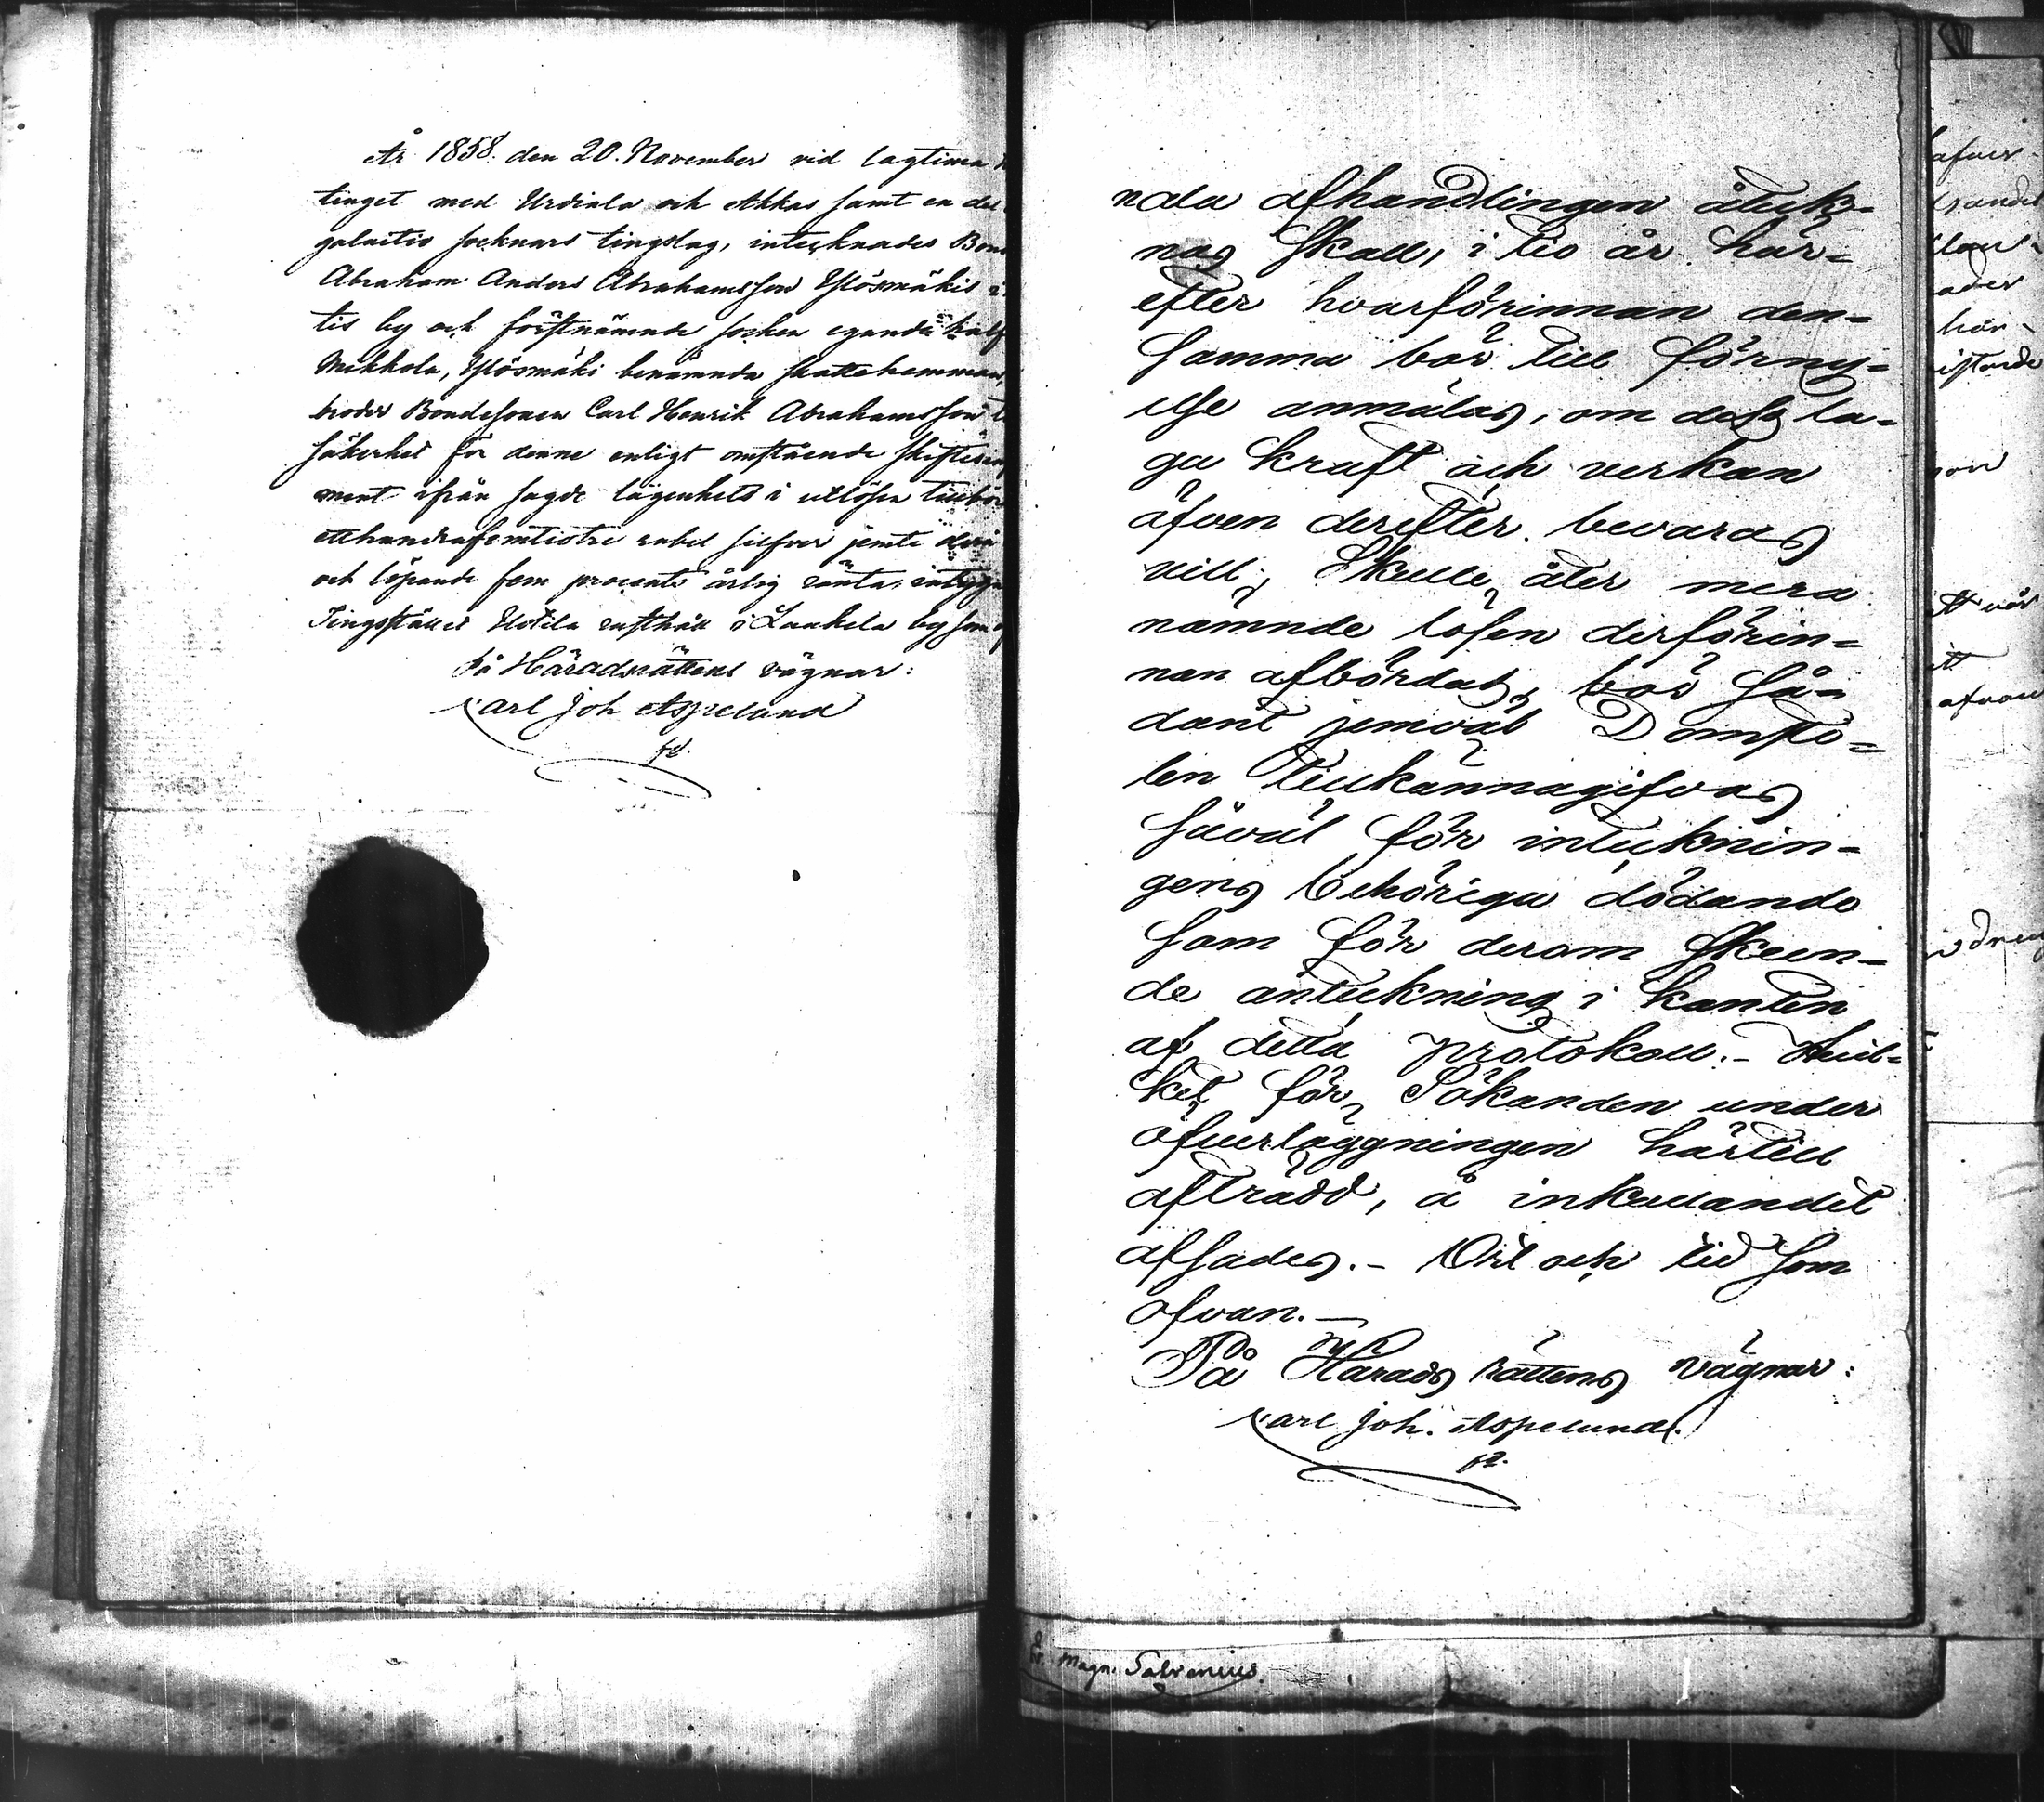 År 1858. den 20. November vid lagtima
tinget med Urdiala och Akkas samt en del
galaitis socknars tingslag, intecknades Bon
Abraham Anders Abrahamsson Ylösmäkis
tis by och förstnämnde socken egande half
Mikkola, Ylösmäki benämnda skattehemman,
broder Bondesonen Carl Henrik Abrahamsson
säkerhet för denne enligt omstående skiftes
ment ifrån sagde lägenhets i utlösen tillkom
etthundrafemtiotre rubel silfver jemte derå
och löpande fem procents årlig ränta; intyga
Tingstället Hotila rusthåll i Laukela by som
På Häradsrättens vägnar:
Carl Joh Aspelund
nda afhandlingen åteck-
nas skall, i tio år här-
efter hvarförinnan den-
samma bör till förny-
else anmälas, om dess la-
ga kraft och verkan
äfven derefter bevaras
vill; Skulle åter mera
nämnde lösen derförin-
nan afbördas, bör så-
dant jemväl Domsto-
len tillkännagifvas
såväl för intecknin-
gens behöriga dödande
som för derom skeen-
de anteckning i kanten
af detta protokoll.- Hvil-
ket för Sökanden under
öfverläggningen härtill
afträdd, å inkallandet
afsades.- Ort och tid som
ofvan.—
På Härads rättens vägnar:
Carl Joh. Aspelund.
Magn. Salvenius
afver
sandet
ader
här-
istande